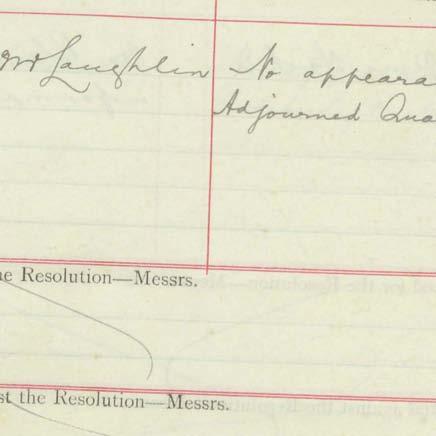 McLaughlin No appeara
Adjourned Qua
he Resolution—Messrs.
st the Resolution—Messrs.